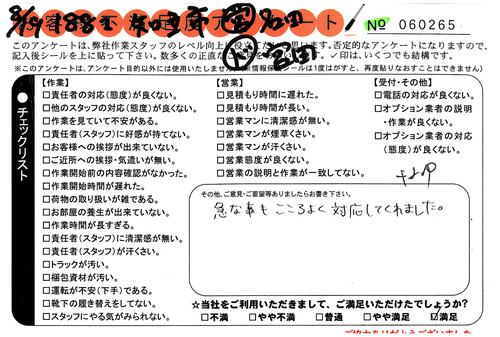 No 060265
このアンケートは、弊社作業スタッフのレベル向上に役立てたいと思います。否定的なアンケートになりますので、
記入後シールを上に貼って下さい。
✓印は、いくつでも結構です。
チェックリスト
【作業】
□責任者の対応(態度)が良くない。
□他のスタッフの対応(態度)が良くない。
□作業を見ていて不安がある。
□責任者(スタッフ)に好感が持てない。
□お客様への挨拶が出来ていない。
□ご近所への挨拶・気遣いが無い。
□作業開始前の内容確認がなかった。
□作業開始時間が遅れた。
□荷物の取り扱いが雑である。
□お部屋の養生が出来ていない。
□作業時間が長すぎる。
□責任者(スタッフ)に清潔感が無い。
□責任者(スタッフ)が汗くさい。
□トラックが汚い。
□梱包資材が汚い。
□運転が不安(下手)である。
□靴下の履き替えをしてない。
□スタッフにやる気がみられない。
【営業】
□見積もり時間に遅れた。
□見積もり時間が長い。
□営業マンに清潔感が無い。
□営業マンが煙草くさい。
□営業マンが汗くさい。
□営業態度が良くない。
□営業の説明と作業が一致してない。
【受付・その他】
□電話の対応が良くない。
□オプション業者の説明
・作業が良くない。
□オプション業者の対応
(態度)が良くない。
その他、ご意見・ご要望等ありましたらお書き下さい。
急な事もこころよく対応してくれました。
☆当社をご利用いただきまして、ご満足いただけたでしょうか?
□不満 □やや不満 □普通 □やや満足 ☑満足
ご協力ありがとうございました